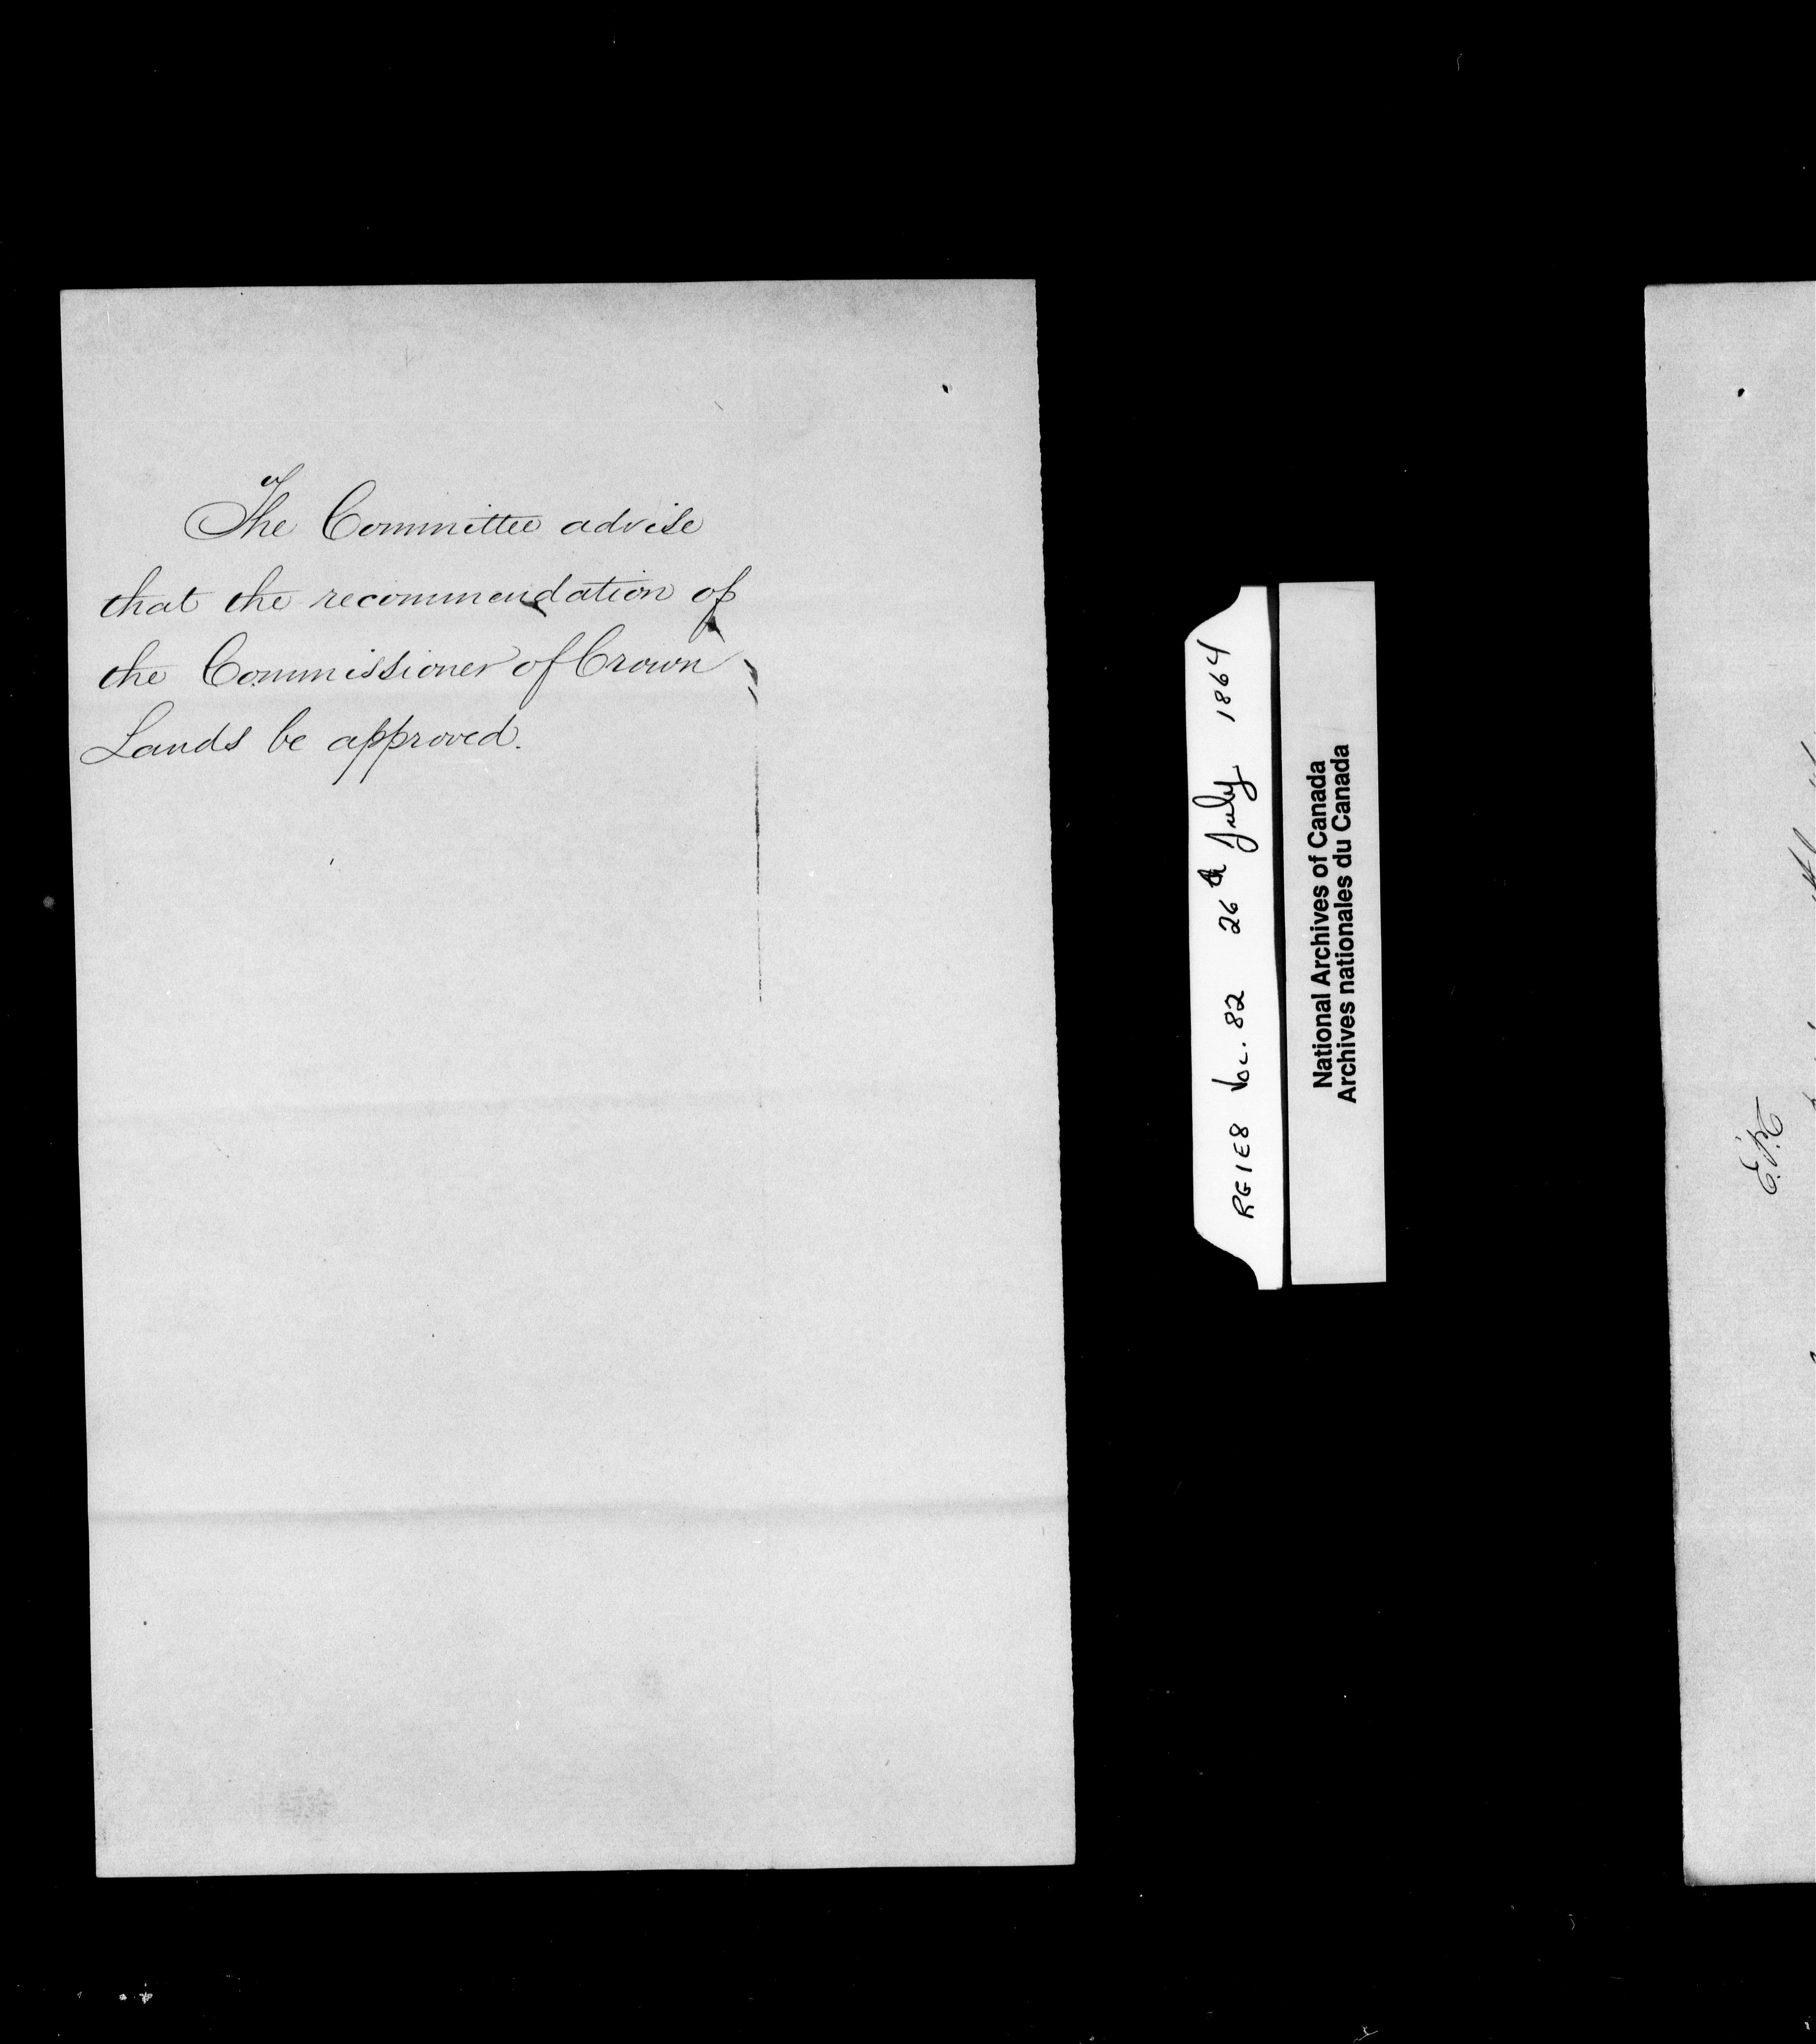 The Committee advise
that the recommendation of
the Commissioner of Crown
Lands be approved.
RG1E8 VOL. 82 26th July 1864
National Archives of Canada
Archives nationales du Canada